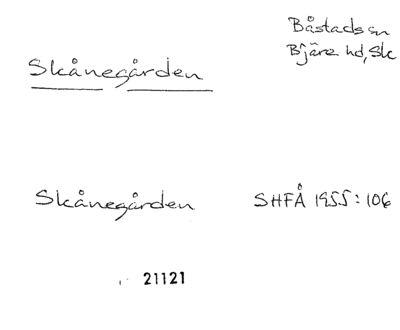 Båstads sn
Bjäre hd, Sk
Skånegården
Skånegården SHFÅ 1955:106
21121